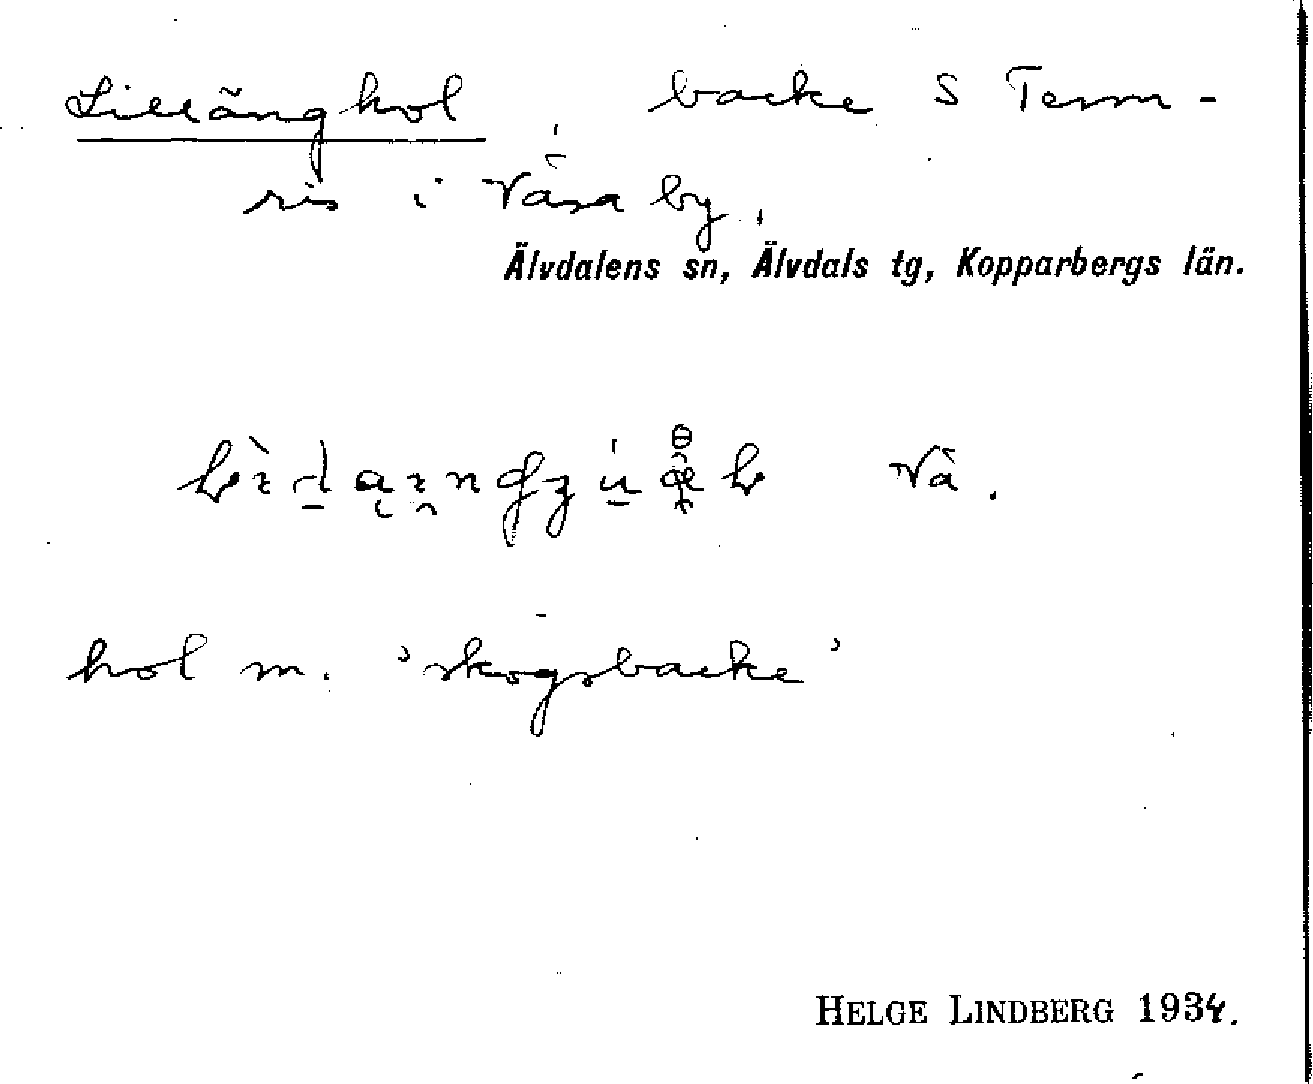 Lillänghol backe S Tenn-
ris i Våsa by.
Älvdalens sn, Älvdals tg, Kopparbergs län.
Vå.
hol m. 'skogsbacke'
HELGE LINDBERG 1934.